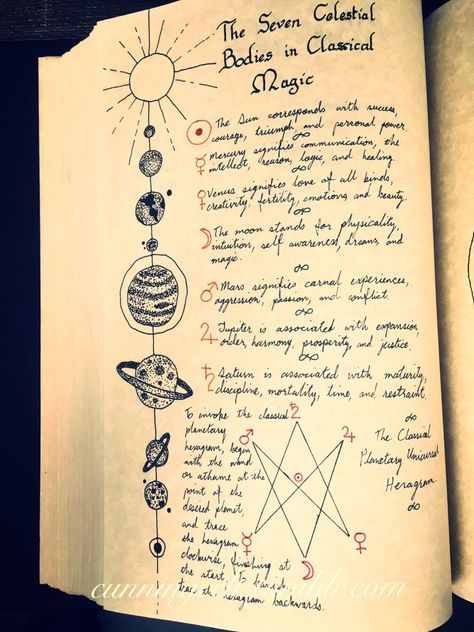 The Seven Celestial
Bodies in Classical
Magic
☉ The Sun corresponds with success,
courage, triumph, and personal power.
☿ Mercury signifies communication, the
intellect, reason, logic, and healing.
♀ Venus signifies love of all kinds,
creativity, fertility, emotions, and beauty.
☽ The moon stands for physicality,
intuition, self awareness, dreams, and
magic.
♂ Mars signifies carnal experiences,
aggression, passion, and conflict.
♃ Jupiter is associated with expansion,
order, harmony, prosperity, and justice.
♄ Saturn is associated with maturity,
discipline, mortality, time, and restraint.
To invoke the classical
planetary
hexagram, begin
with the wand
or athame at the
point of the
desired planet,
and trace
the hexagram
clockwise, finishing at
the start. To banish,
the hexagram backwards.
♄
♂
♃
☉
☿
♀
☽
The Classical
Planetary Unicursal
Hexagram.